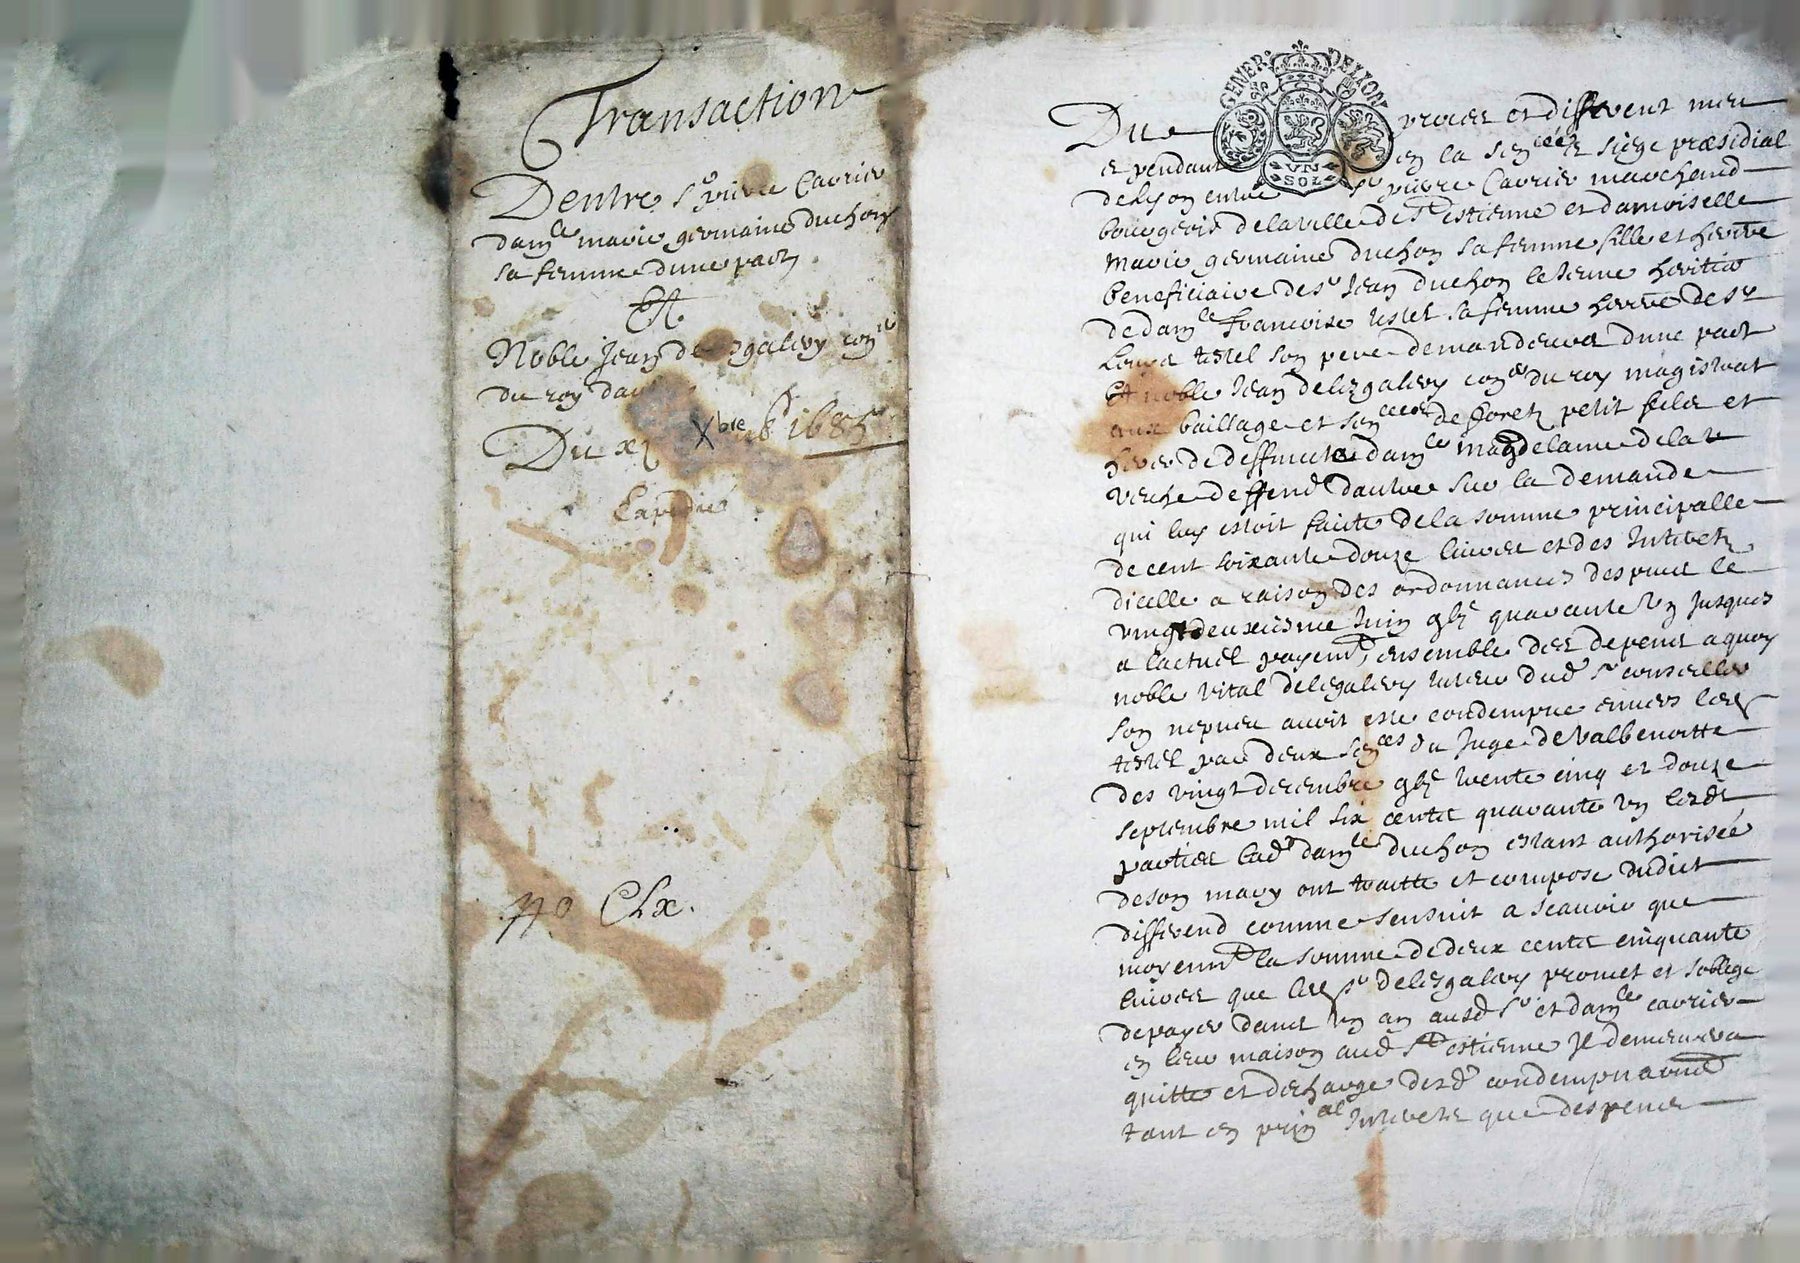 Transaction
Dentre sr pierre Cavrier
damlle marie germaine duchon
sa femme dune part
Et
Noble Jean de galery conr
du roy dau
Du xj Xbre 1685
Expedié
no Clx.
GENER DE LION
VN
SOL
Du proces et different meu
et pendant en la sencee et siege præsidial
de lyon entre sr pierre Cavrier marchand
bourgeois de la ville de St estienne et damoiselle
Marie germaine duchon sa femme fille et herre
beneficiaire de sr Jean duchon le Jeune heritier
de damlle francoise testel sa femme herre de sr
Louys testel son pere demandeurs dune part
Et noble Jean delesgalery conser du roy magistrat
aux baillage et sencee de forest petit filz et
herer de deffuncte damlle magdelaine de la
veuhe deffendr dautre sur la demande
qui luy estoit faicte de la somme principalle
de cent soixante douze livres et des Interetz
dicelle a raison des ordonnances despuis le
vingt deuxiesme Juin gbc quarante un Jusques
a lactuel payemt, ensemble des depens a quoy
noble vital delesgalery tuteur dud sr conseiller
son nepveu avoit este condempne envers led
testel par deux sences du Juge de Valbenoitte
des vingt decembre gbc trente cinq et douze
septembre mil six centz quarante un lesdt
parties lad damlle duchon estant authorisée
de son mary ont traitté et composé dudict
differend comme sensuit a scavoir que
moyennt la somme de deux centz cinquante
livres que led sr delesgalery promet et soblige
de payer dans un an ausd sr et damlle cavrier
en leur maison aud St estienne Jl demeurera
quitte et deshargé desd condempnaons
tant en prinal Interetz que despens